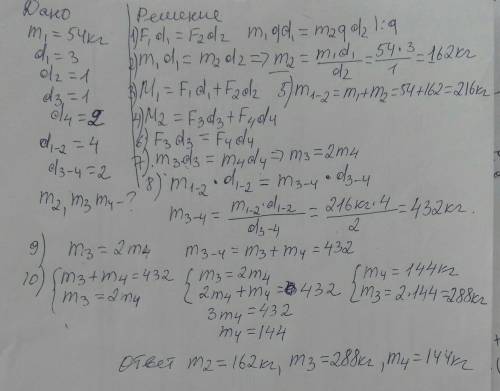 Дано
m₁ = 54кг
d₁ = 3
d₂ = 1
d₃ = 1
d₄ = 2
d₁₋₂ = 4
d₃₋₄ = 2
m₂, m₃ m₄ - ?
Решение
1) F₁d₁ = F₂d₂ m₁gd₁ = m₂gd₂ |:g
2) m₁d₁ = m₂d₂ => m₂ = m₁d₁/d₂ = 54·3/1 = 162кг
3) M₁ = F₁d₁ + F₂d₂ 5) m₁₋₂ = m₁ + m₂ = 54 + 162 = 216кг
4) M₂ = F₃d₃ + F₄d₄
6) F₃d₃ = F₄d₄
7) m₃d₃ = m₄d₄ => m₃ = 2m₄
8) m₁₋₂ · d₁₋₂ = m₃₋₄ · d₃₋₄
m₃₋₄ = m₁₋₂·d₁₋₂/d₃₋₄ = 216кг·4/2 = 432кг.
9) m₃ = 2m₄ m₃₋₄ = m₃ + m₄ = 432
10) { m₃ + m₄ = 432 { m₃ = 2m₄ { m₄ = 144кг
m₃ = 2m₄ 2m₄ + m₄ = 432 m₃ = 2·144 = 288кг
3m₄ = 432
m₄ = 144
Ответ m₂ = 162кг, m₃ = 288кг, m₄ = 144кг